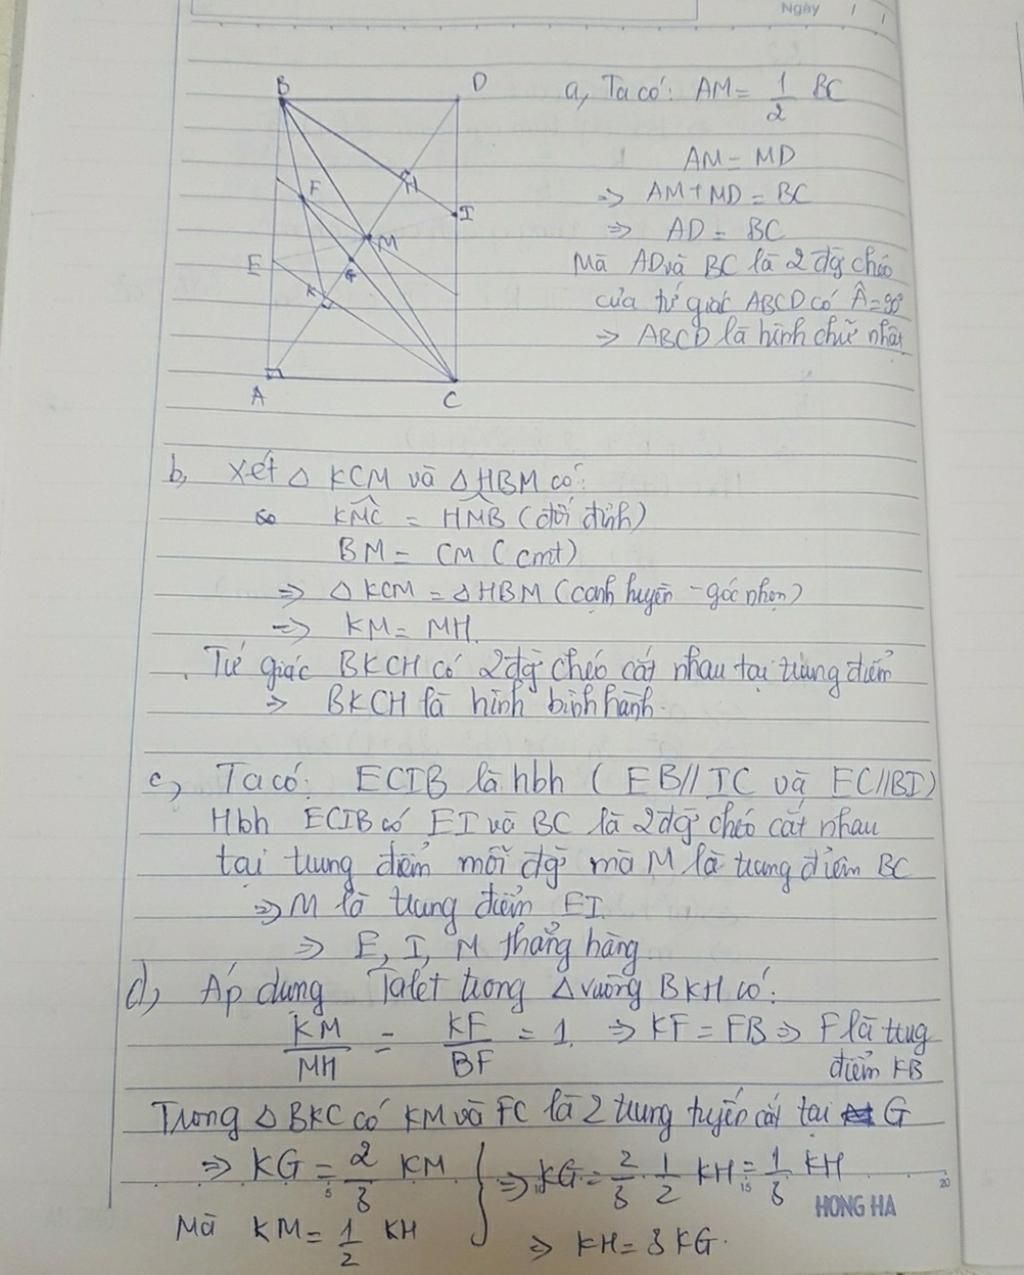 Ngày / /
B
D
H
F
I
M
E
G
K
A
C
a, Ta có: AM = 1/2 BC
AM = MD
=> AM + MD = BC
=> AD = BC
Mà AD và BC là 2 đg chéo
của tứ giác ABCD có Â = 90°
=> ABCD là hình chữ nhật
b, Xét △ KCM và △ HBM có:
KMC = HMB (đối đỉnh)
BM = CM (cmt)
=> △ KCM = △ HBM (cạnh huyền - góc nhọn)
=> KM = MH.
Tứ giác BKCH có 2 đg chéo cắt nhau tại trung điểm
=> BKCH là hình bình hành.
c, Ta có: ECIB là hbh ( EB // IC và EC // BI)
Hbh ECIB có EI và BC là 2 đg chéo cắt nhau
tại trung điểm mỗi đg mà M là trung điểm BC
=> M là trung điểm EI.
=> E, I, M thẳng hàng
d, Áp dụng Talet trong △ vuông BKH có:
KM/MH = KF/BF = 1. => KF = FB => F là trug
điểm KB
Trong △ BKC có KM và FC là 2 trung tuyến cắt tại G
=> KG = 2/3 KM } => KG = 2/3 . 1/2 KH = 1/3 KH
Mà KM = 1/2 KH
=> KH = 3 KG.
HONG HA